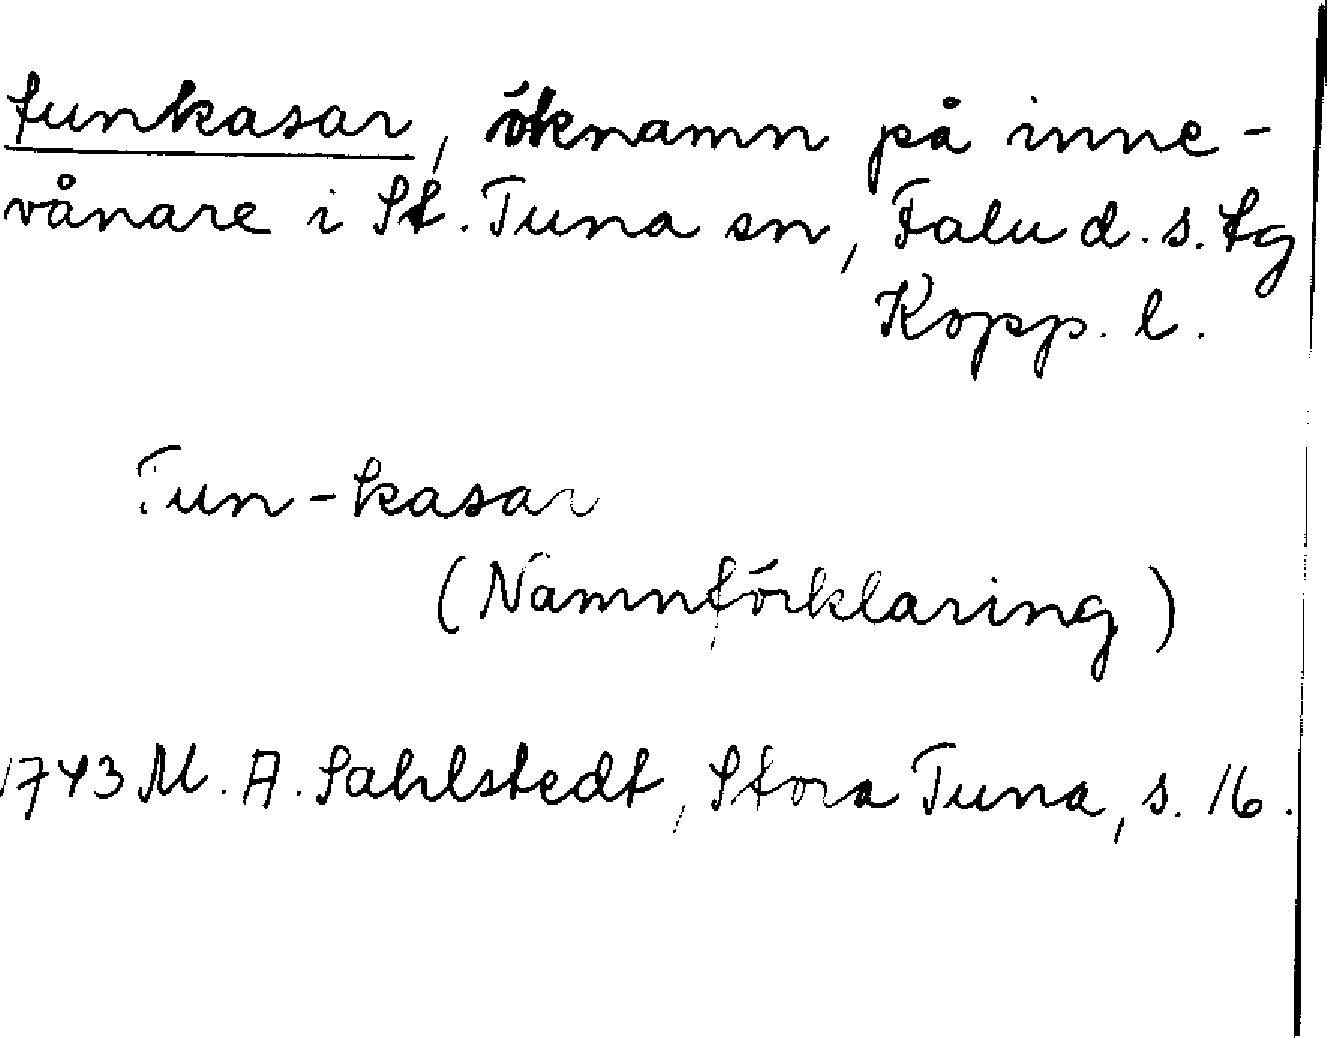 tunkasar, öknamn på inne-
vånare i St. Tuna sn, Falu d. s. tg
Kopp. l.
Tun-kasar
(Namnförklaring)
1743 M. A. Sahlstedt, Stora Tuna, s. 16.